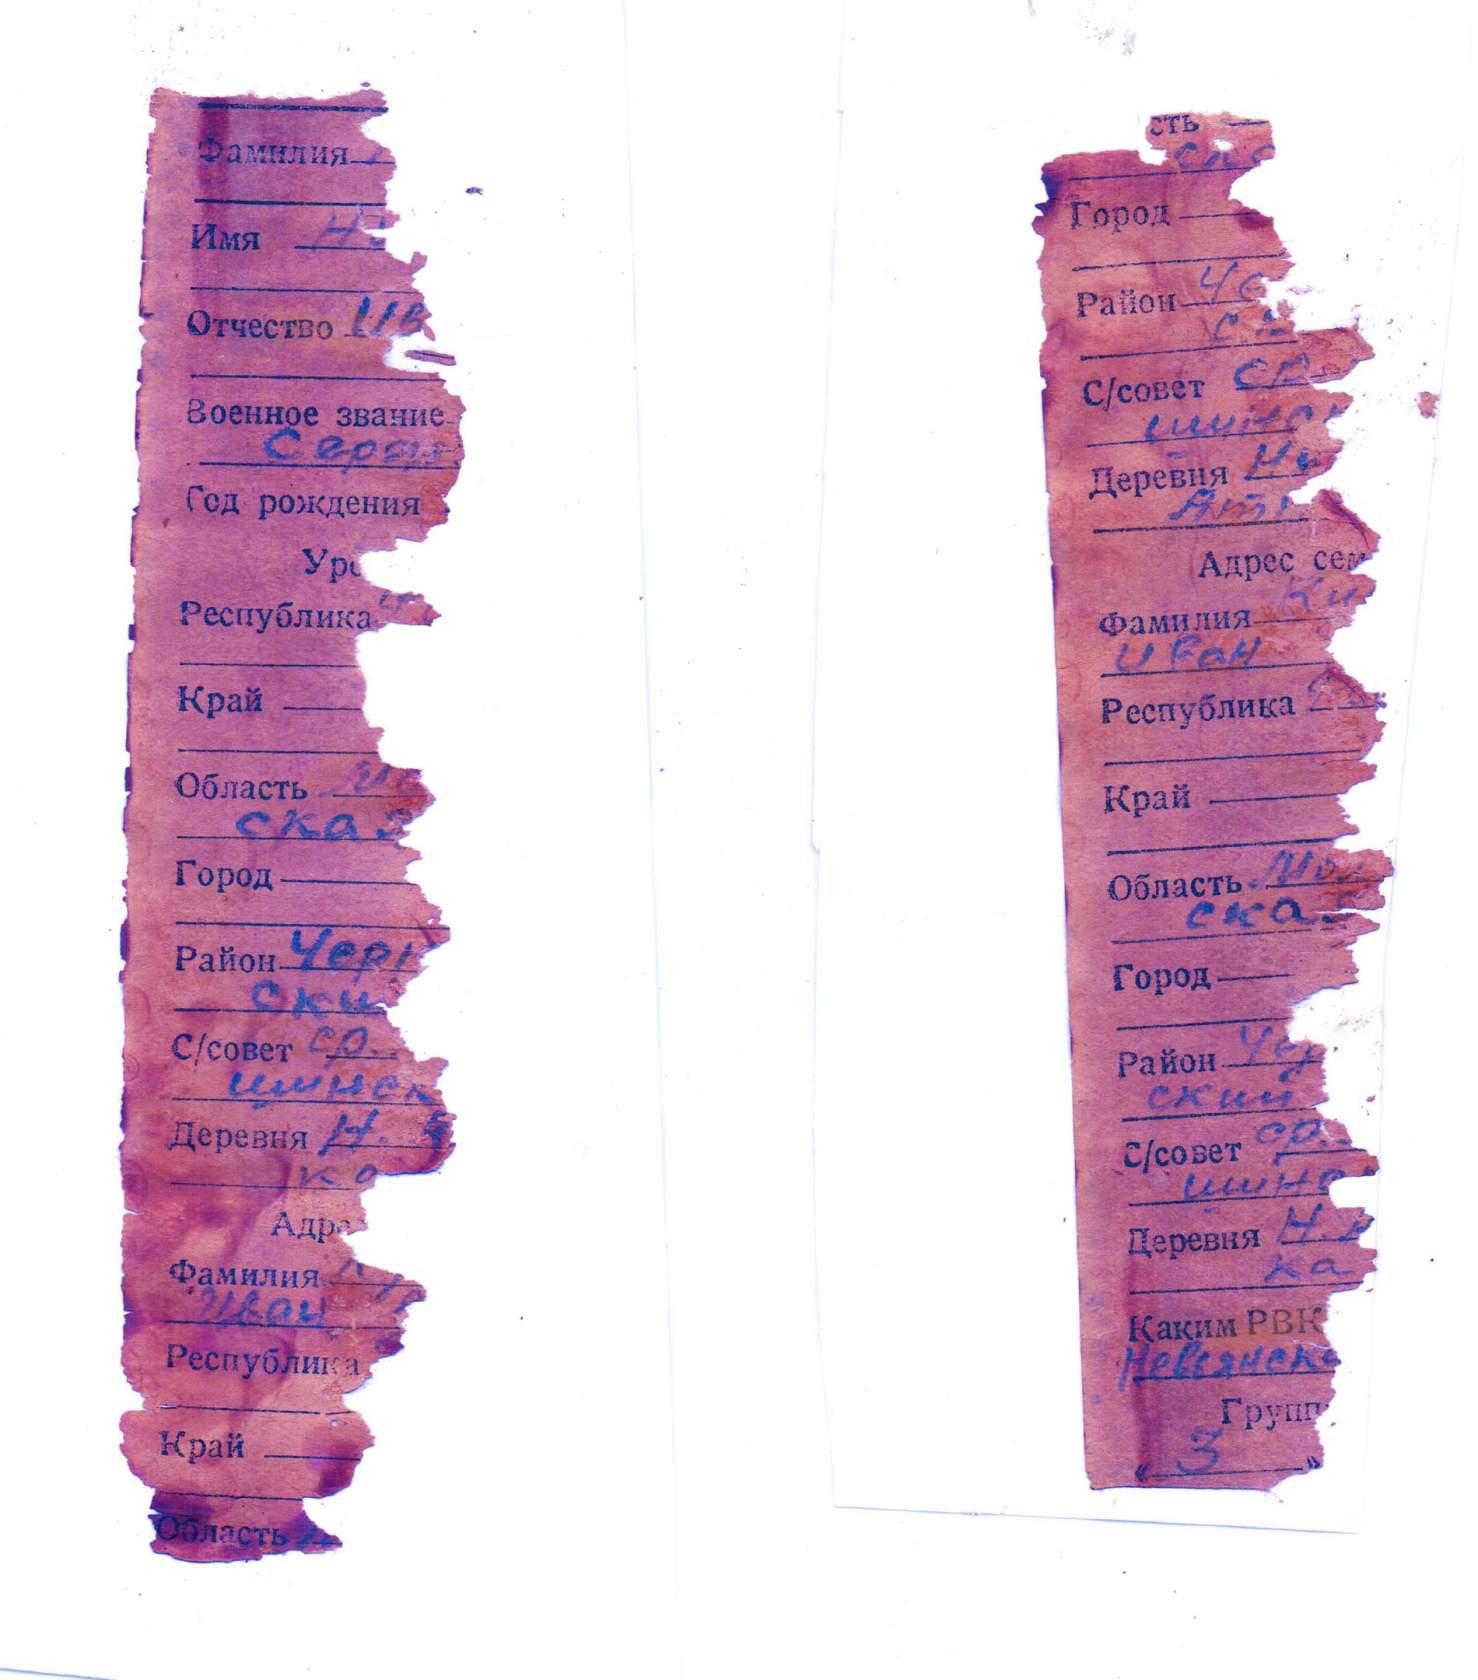 Фамилия
Имя Н
Отчество Ив
Военное звание
Серж
Год рождения
Ур
Республика
Край
Область Мо
ская
Город
Район Черн
ски
С/совет ср.
шинск
Деревня Н.
ка
Адре
Фамилия
Иван
Республика
Край
Область
сть
ска
Город
Район Че
ск
С/совет ср
шинск
Деревня Ни
Адрес сем
Фамилия Ки
Иван
Республика
Край
Область Мол
ская
Город
Район Чер
ский
С/совет ср.
шинс
Деревня Н.
ка
Каким РВК
Невьянск
Групп
« 3 »